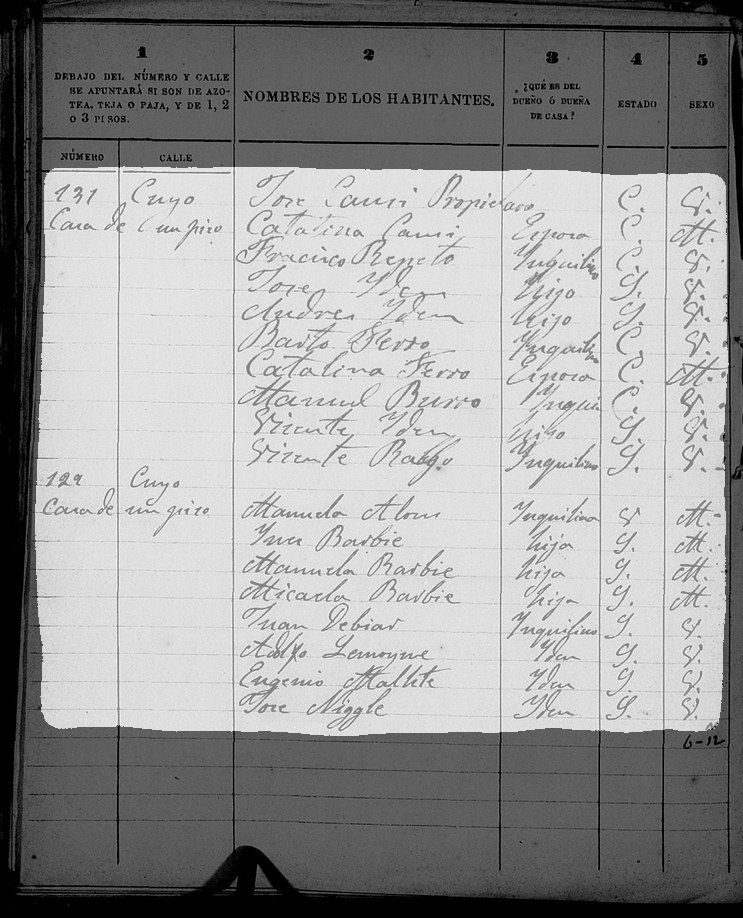 1 2 3 4 5
DEBAJO DEL NÚMERO Y CALLE
SE APUNTARÁ SI SON DE AZO-
TEA, TEJA O PAJA, Y DE 1, 2
O 3 PISOS.
NOMBRES DE LOS HABITANTES.
¿QUÉ ES DEL
DUEÑO Ó DUEÑA
DE CASA?
ESTADO
SEXO
NÚMERO CALLE
131 Cuyo Jose Propietario C. V.
Casa de un piso Catalina Esposa C. M.
Repeto Inquilino C. V.
Jose Yden hijo S. V.
Andres Yden hijo S. V.
Barto Ferro Inquilino C. V.
Catalina Ferro Esposa C. M.
Manuel Burro Inquili C. V.
Vicente Yden hijo S. V.
Vicente Inquilino S. V.
129 Cuyo
Casa de un piso Manuela Inquilina V M.
Barbie hija S. M.
Manuela Barbie hija S. M.
Micaela Barbie hija S. M.
Juan Debiar Inquilino S. V.
Adolfo Lemoyne Yden S. V.
Eugenio Yden S. V.
Jose Niggle Yden S. V.
6-12